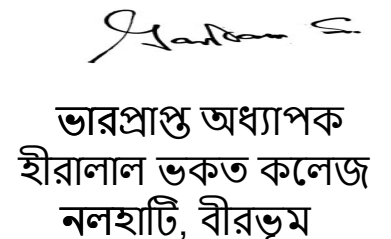 ভারপ্রাপ্ত অধ্যাপক
হীরালাল ভকত কলেজ
নলহাটি, বীরভূম